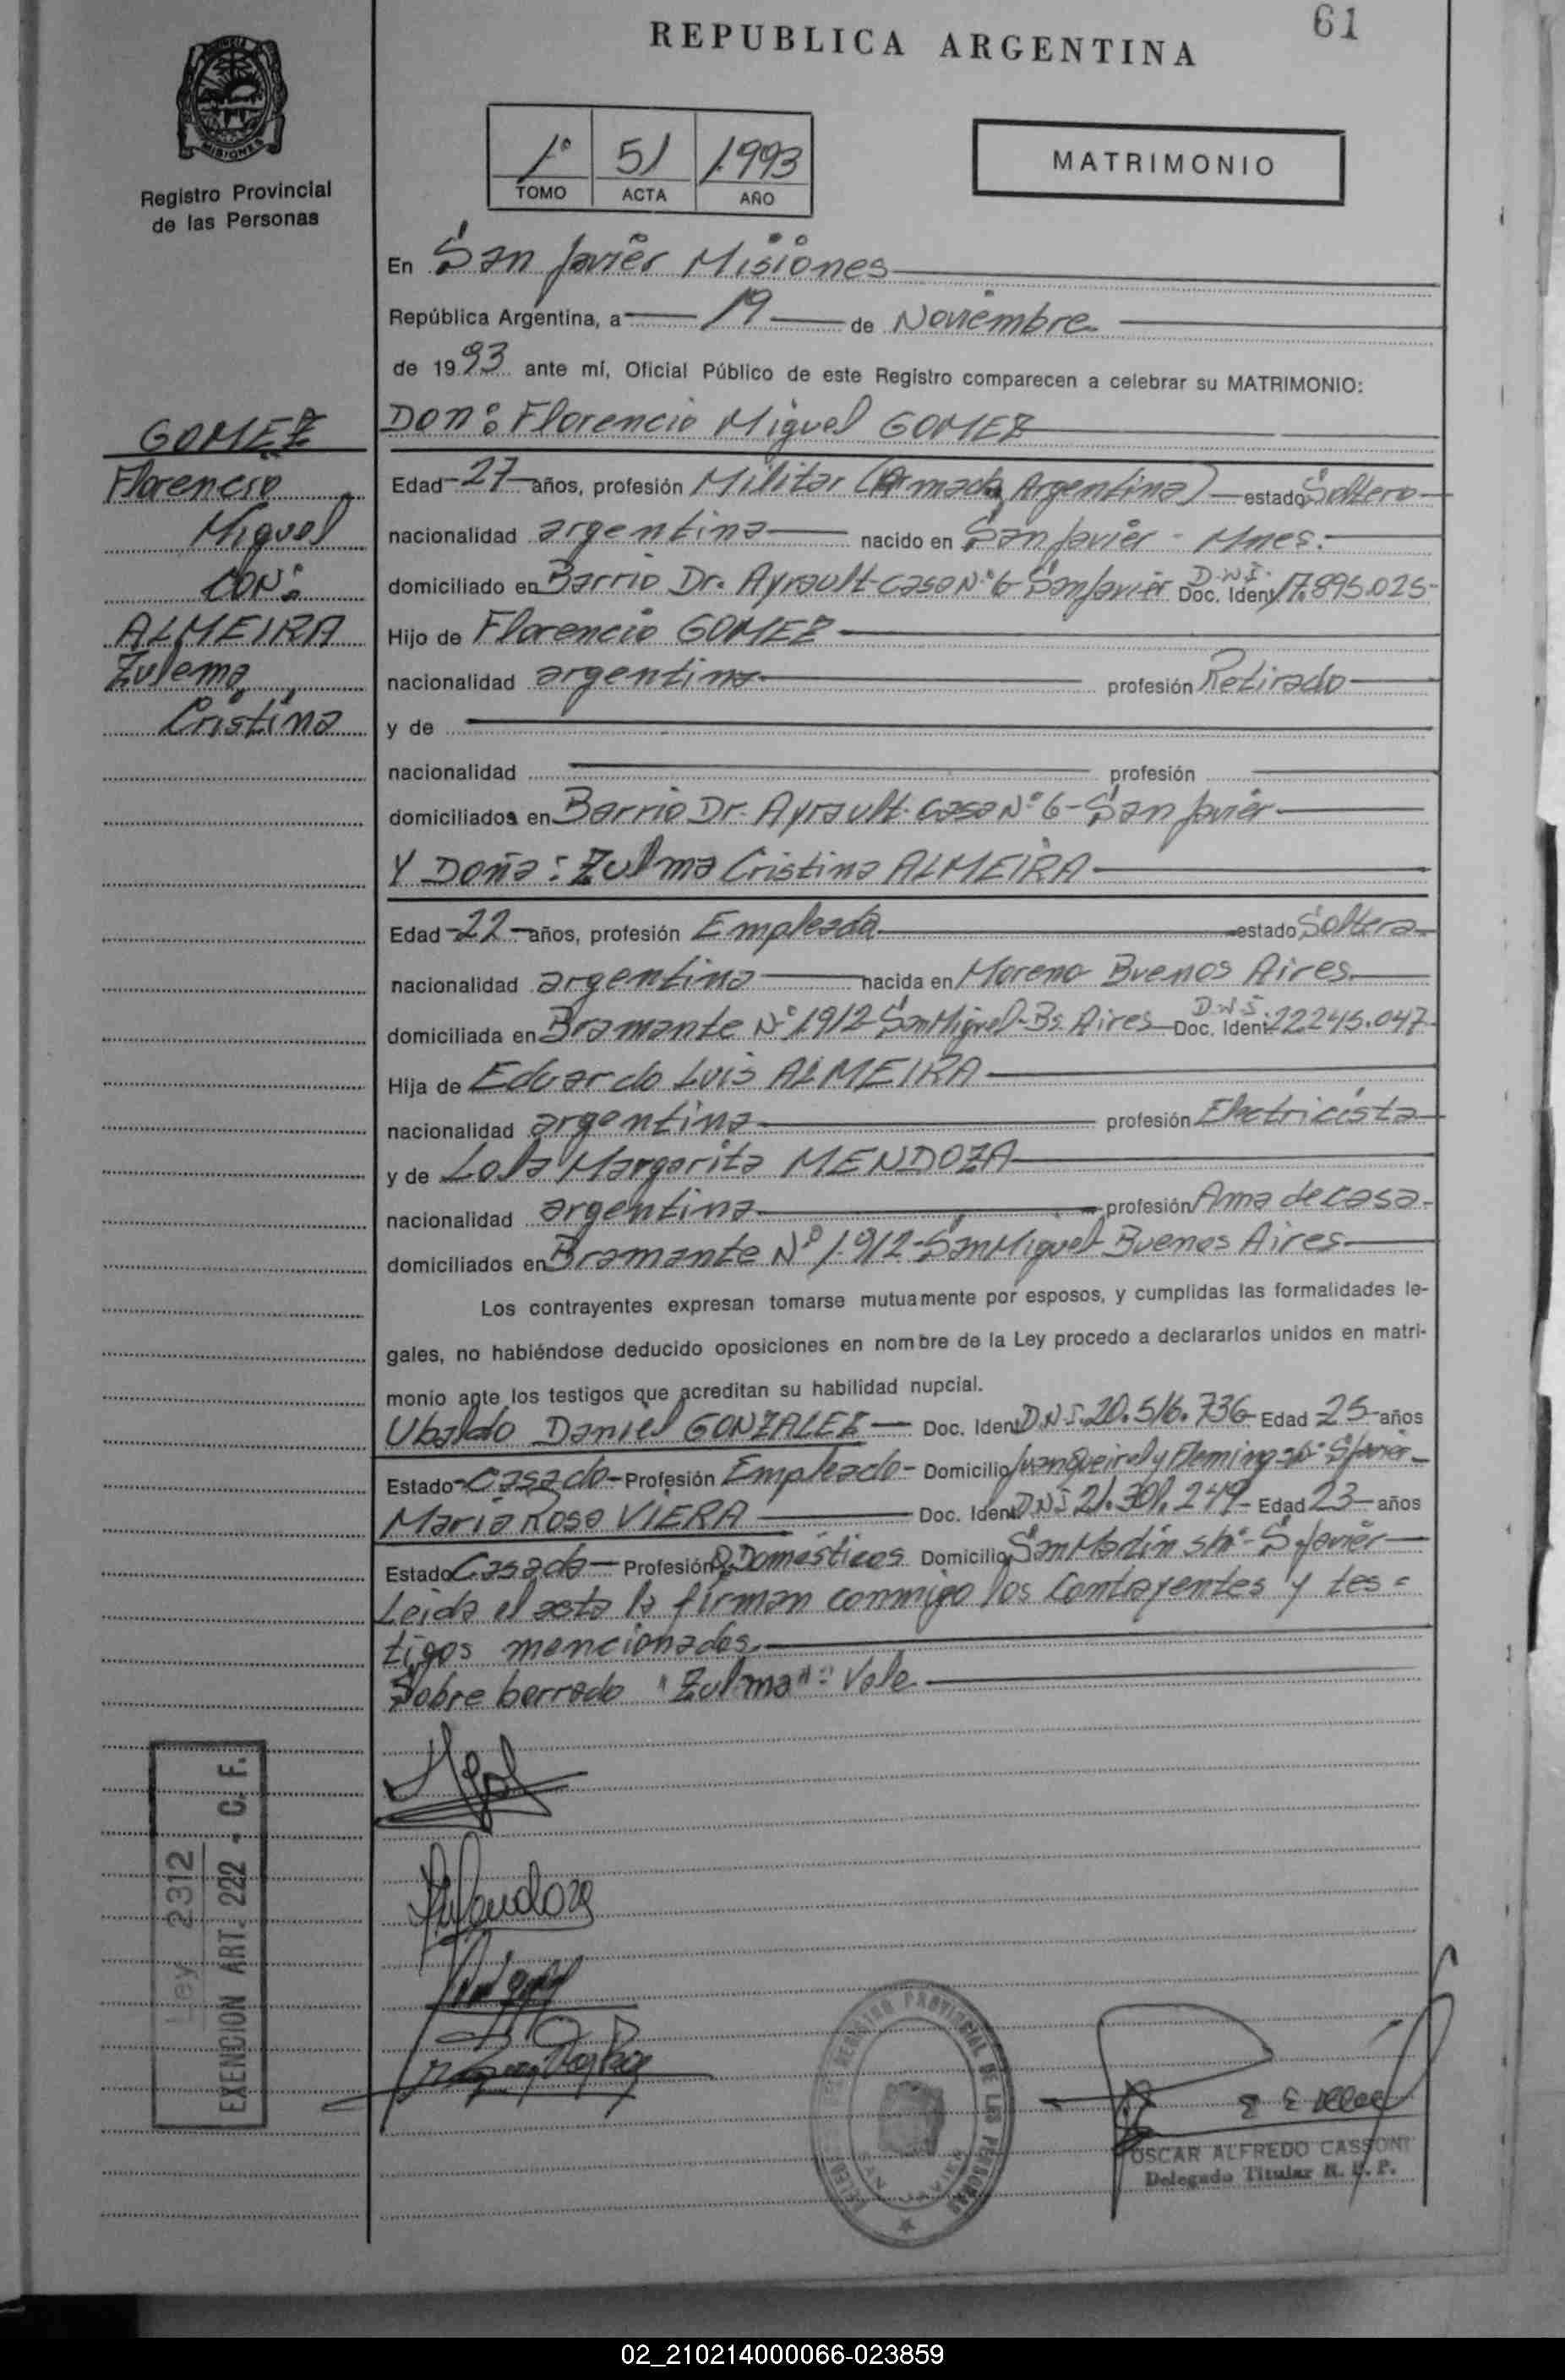 61
REPUBLICA ARGENTINA
MISIONES
Registro Provincial
de las Personas
1º 51 1993
TOMO ACTA AÑO
MATRIMONIO
En San Javier Misiones
República Argentina, a 19 de Noviembre
de 1993 ante mí, Oficial Público de este Registro comparecen a celebrar su MATRIMONIO:
GOMEZ
Florencio
Miguel
CON:
ALMEIRA
Zulema
Cristina
Don: Florencio Miguel GOMEZ
Edad 27 años, profesión Militar (Armada Argentina) estado Soltero
nacionalidad argentina nacido en San Javier - Mnes.
domiciliado en Barrio Dr. Ayrault-casa Nº 6 San Javier Doc. Ident. D.N.I. 17.895.025
Hijo de Florencio GOMEZ
nacionalidad argentina profesión Retirado
y de
nacionalidad profesión
domiciliados en Barrio Dr. Ayrault-casa Nº 6-San Javier
Y Doña: Zulma Cristina ALMEIRA
Edad 22 años, profesión Empleada estado Soltera
nacionalidad argentina nacida en Moreno Buenos Aires
domiciliada en Bramante Nº 1912-San Miguel-Bs. Aires Doc. Ident. D.N.I. 22.245.047
Hija de Eduardo Luis ALMEIRA
nacionalidad argentina profesión Electricista
y de Lola Margarita MENDOZA
nacionalidad argentina profesión Ama de casa
domiciliados en Bramante Nº 1.912-San Miguel-Buenos Aires
Los contrayentes expresan tomarse mutuamente por esposos, y cumplidas las formalidades le-
gales, no habiéndose deducido oposiciones en nombre de la Ley procedo a declararlos unidos en matri-
monio ante los testigos que acreditan su habilidad nupcial.
Ubaldo Daniel GONZALEZ Doc. Ident. D.N.I. 20.516.736 Edad 25 años
Estado Casado Profesión Empleado Domicilio Juan Queirel y Fleming S/Nº S. Javier
Maria Rosa VIERA Doc. Ident. D.N.I. 21.301.249 Edad 23 años
Estado Casada Profesión Q. Domésticos Domicilio San Martín S/Nº-S. Javier
Leida el acta la firman conmigo los Contrayentes y tes=
tigos mencionados.
Sobre borrado "Zulma": Vale
Ley 2312
EXENCION ART. 222 - C. F.
REGISTRO PROVINCIAL DE LAS PERSONAS
OSCAR ALFREDO CASSONI
Delegado Titular R. P. P.
02_210214000066-023859